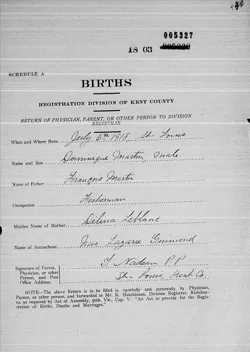 005327
18 03
SCHEDULE A
BIRTHS
REGISTRATION DIVISION OF KENT COUNTY
RETURN OF PHYSICIAN, PARENT, OR OTHER PERSON TO DIVISION
REGISTRAR
When and Where Born. July 6th 1918, St. Louis
Name and Sex. Dominique Martin Male
Name of Father François Martin
Occupation Fisherman
Maiden Name of Mother Delina Leblanc
Name of Accoucheur Mrs. Lazarre
Signature of Parent,
Physician, or other
Person, and Post
Office Address
J Nadeau P.P.
St. Louis, Kent Co.
NOTE:—The above Return is to be filled in carefully and accurately by Physician,
Parent, or other person, and forwarded to Mr. R. Hutchinson, Division Registrar, Richibucto,
as required by Act of Assembly, 50th Vic. Cap. V. "An Act to provide for the Regis-
tration of Births, Deaths and Marriages."